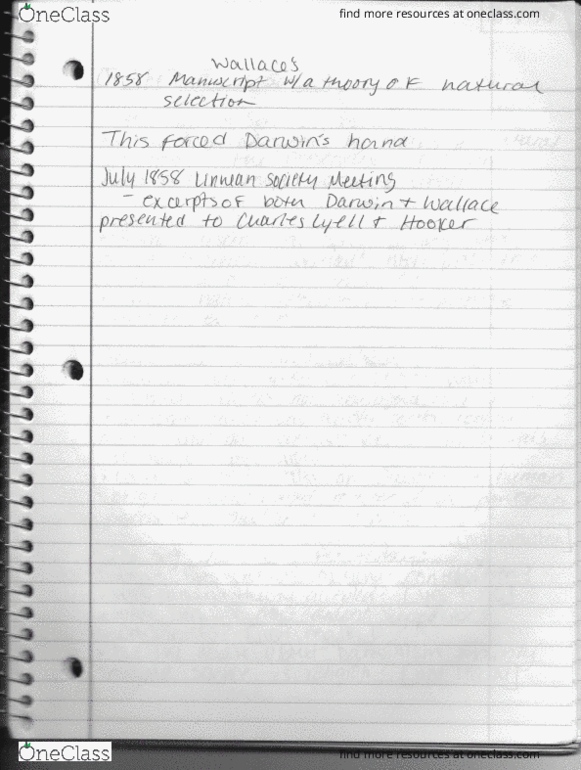 OneClass
find more resources at oneclass.com
Wallaces
1858 Manuscript w/a theory of natural
selection
This forced Darwin's hand
July 1858 Linnean society Meeting
- excerpts of both Darwin + Wallace
presented to Charles Lyell + Hooker
OneClass
find more resources at oneclass.com